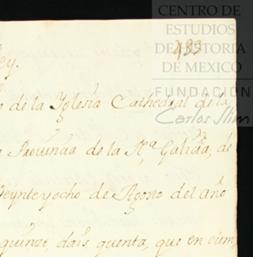 CENTRO DE
ESTUDIOS
DE HISTORIA
DE MEXICO
FUNDACIÓN
Carlos Slim
433
ey.
de la Yglesia Cathedral de la
Provincia de la Na. Galicia, de
Veynte y ocho de Agosto del año
quinze, dais quenta, que en